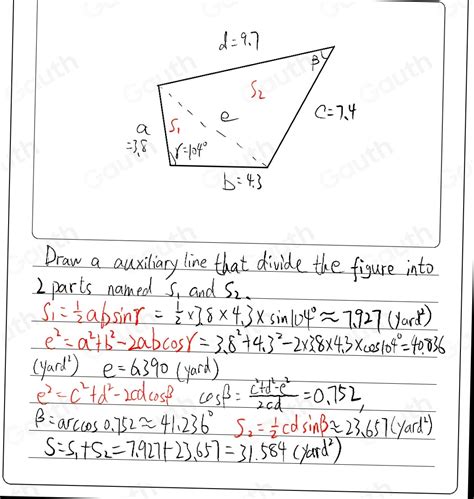 d=9.7
β
S₂
e
C=7.4
a
=3.8
S₁
γ=104°
b=4.3
Draw a auxiliary line that divide the figure into
2 parts named S₁ and S₂.
S₁=½absinγ = ½×3.8×4.3×sin104°≈7.927(yard²)
e²=a²+b²-2abcosγ=3.8²+4.3²-2×3.8×4.3×cos104°=40.836
(yard²) e=6.390(yard)
e²=c²+d²-2cdcosβ cosβ=(c²+d²-e²)/2cd=0.752,
β=arccos0.752≈41.236° S₂=½cdsinβ≈23.657(yard²)
S=S₁+S₂=7.927+23.657=31.584(yard²)
Gauth